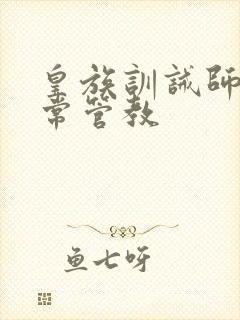 皇族訓誡師
常管教
鱼七呀